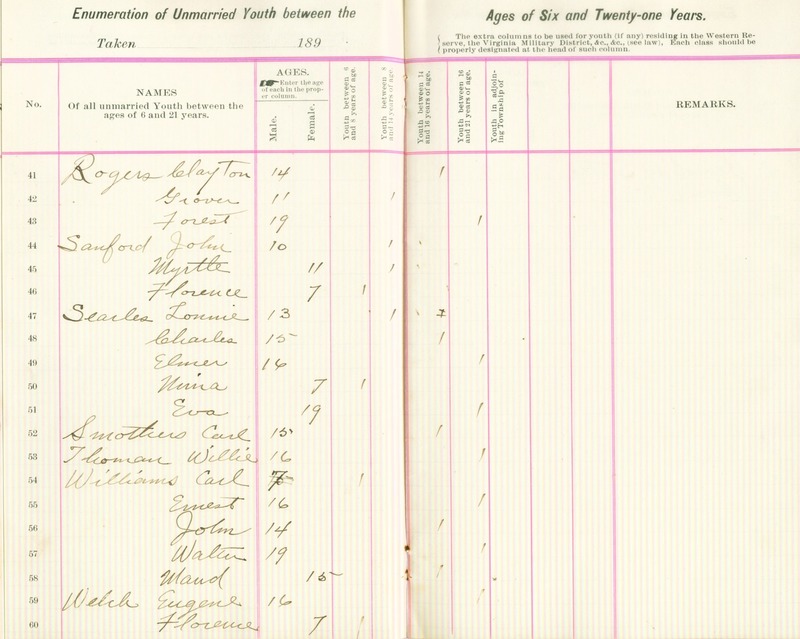 Enumeration of Unmarried Youth between the Ages of Six and Twenty-one Years.
Taken 189
The extra columns to be used for youth (if any) residing in the Western Re-
serve, the Virginia Military District, &c., &c., (see law). Each class should be
properly designated at the head of such column.
No.
NAMES
Of all unmarried Youth between the
ages of 6 and 21 years.
AGES.
Enter the age
of each in the prop-
er column.
Male.
Female.
Youth between 6
and 8 years of age.
Youth between 8
and 14 years of age.
Youth between 14
and 16 years of age.
Youth between 16
and 21 years of age.
Youth in adjoin-
ing Township of
REMARKS.
41 Rogers Clayton 14 /
42 Grover 11 /
43 Forest 19 /
44 Sanford John 10 /
45 Myrtle 11 /
46 Florence 7 /
47 Searles Lonnie 13 /
48 Charles 15 /
49 Elmer 16 /
50 Nina 7 /
51 Eva 19 /
52 Smothers Carl 15 /
53 Thoman Willie 16 /
54 Williams Carl 7 /
55 Ernest 16 /
56 John 14 /
57 Walter 19 /
58 Maud 15 /
59 Welch Eugene 16 /
60 Florence 7 /